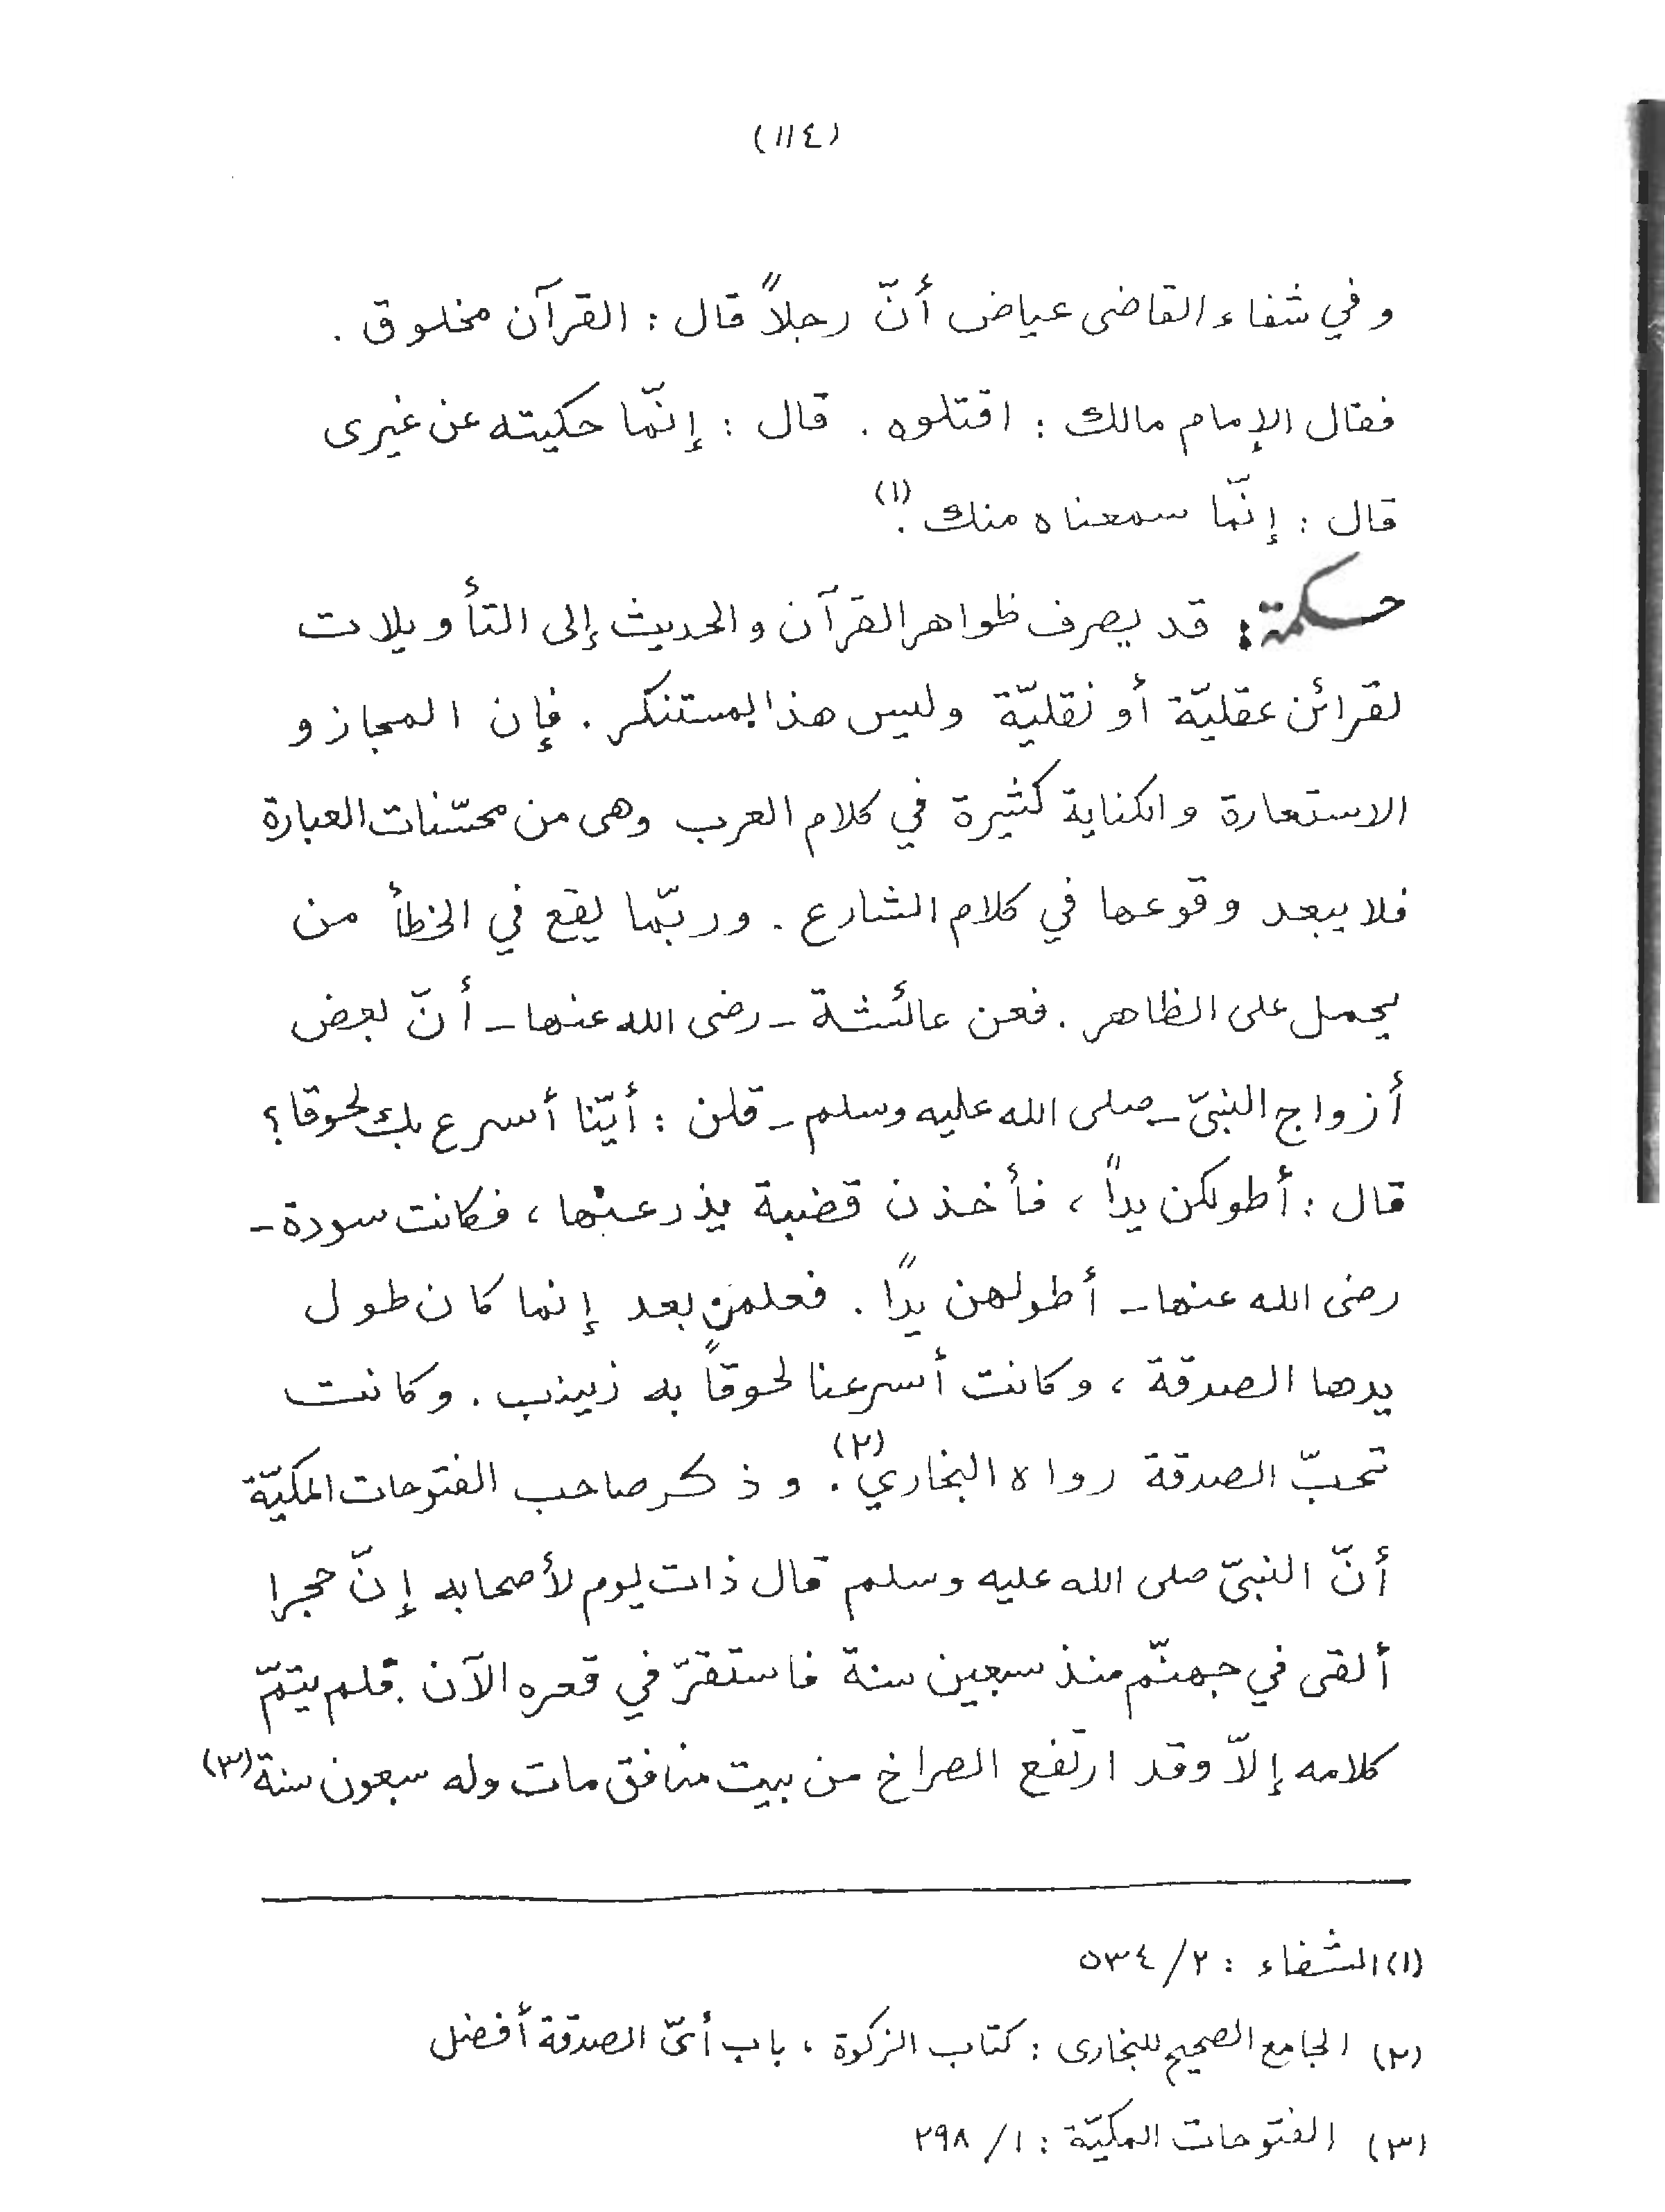 (١١٤)
وفي شفاء القاضى عياض أنّ رجلاً قال : القرآن مخلوق .
فقال الإمام مالك : اقتلوه . قال : إنّما حكيته عن غيرى
قال : إنّما سمعناه منك .(١)
حكمة : قد يصرف ظواهر القرآن والحديث إلى التأويلات
لقرائن عقليّة أو نقليّة وليس هذا بمستنكر . فإن المجاز و
الاستعارة والكناية كثيرة في كلام العرب وهى من محسّنات العبارة
فلا يبعد وقوعها في كلام الشارع . وربّما يقع في الخطأ من
يحمل على الظاهر . فعن عائشة - رضى الله عنها - أنّ بعض
أزواج النبىّ - صلى الله عليه وسلم - قلن : أيّنا أسرع بك لحوقا ؟
قال : أطولكن يداً ، فأخذن قضبة يذرعنها ، فكانت سودة -
رضى الله عنها - أطولهن يدًا . فعلمن بعد إنما كان طول
يدها الصدقة ، وكانت أسرعنا لحوقاً به زينب . وكانت
تحبّ الصدقة رواه البخاري .(٢) وذكر صاحب الفتوحات المكيّة
أنّ النبىّ صلى الله عليه وسلم قال ذات يوم لأصحابه إنّ حجرا
ألقى في جهنّم منذ سبعين سنة فاستقرّ في قعره الآن . فلم يتمّ
كلامه إلاّ وقد ارتفع الصراخ من بيت منافق مات وله سبعون سنة (٣)
(١) الشفاء : ٢/ ٥٣٤
(٢) الجامع الصحيح للبخارى : كتاب الزكوة ، باب أىّ الصدقة أفضل
(٣) الفتوحات المكيّة : ١/ ٢٩٨